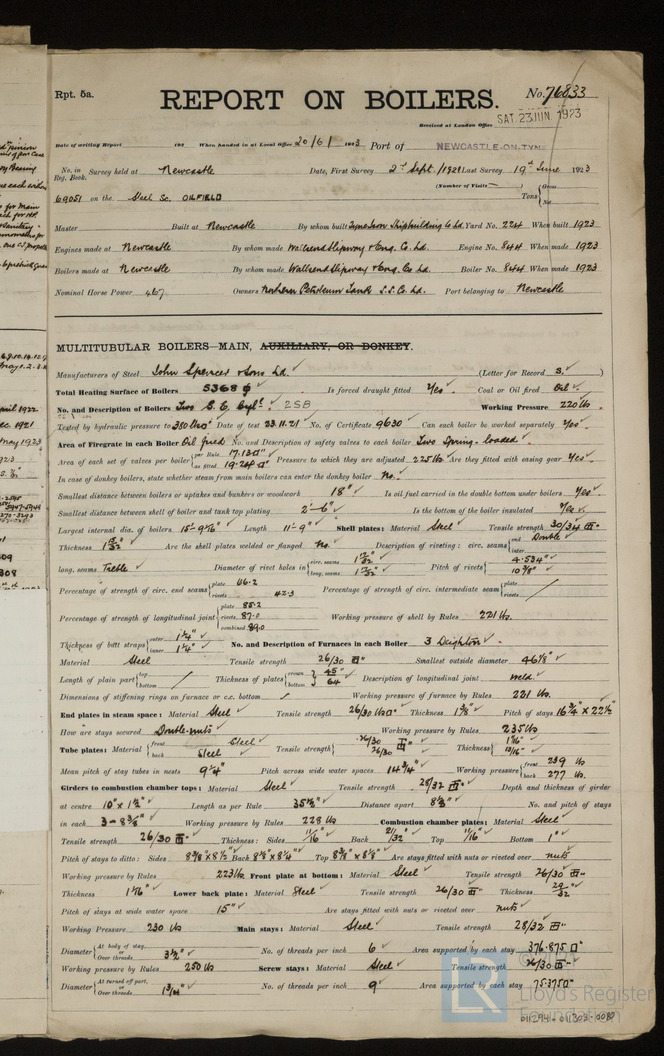 Rpt. 5a.
REPORT ON BOILERS.
No. 76833
Received at London Office SAT. 23 JUN. 1923
Date of writing Report 192 When handed in at Local Office 20/6/1923 Port of NEWCASTLE-ON-TYNE
No. in Reg. Book. Survey held at Newcastle Date, First Survey 2nd Sept./1921 Last Survey 19th June 1923
(Number of Visits
69051 on the Steel Sc. OILFIELD Tons { Gross Net
Master Built at Newcastle By whom built Tyne Iron Shipbuilding Co Ld. Yard No. 224 When built 1923
Engines made at Newcastle By whom made Wallsend Slipway & Eng. Co. Ld. Engine No. 844 When made 1923
Boilers made at Newcastle By whom made Wallsend Slipway & Eng. Co. Ld. Boiler No. 844 When made 1923
Nominal Horse Power 467 Owners Northern Petroleum Tank S.S. Co. Ld. Port belonging to Newcastle
MULTITUBULAR BOILERS—MAIN, AUXILIARY, OR DONKEY.
Manufacturers of Steel John Spencer & Sons Ld. (Letter for Record S. )
Total Heating Surface of Boilers 5368 Is forced draught fitted Yes Coal or Oil fired Oil
No. and Description of Boilers Two S. E. Cyl. 2SB Working Pressure 220 lbs
Tested by hydraulic pressure to 380 lbs Date of test 23.11.21 No. of Certificate 9630 Can each boiler be worked separately Yes
Area of Firegrate in each Boiler Oil fired No. and Description of safety valves to each boiler Two Spring-loaded
Area of each set of valves per boiler { per Rule 17.13 as fitted 19.24 Pressure to which they are adjusted 225 lbs Are they fitted with easing gear Yes
In case of donkey boilers, state whether steam from main boilers can enter the donkey boiler No.
Smallest distance between boilers or uptakes and bunkers or woodwork 18" Is oil fuel carried in the double bottom under boilers Yes.
Smallest distance between shell of boiler and tank top plating 2'-6" Is the bottom of the boiler insulated Yes
Largest internal dia. of boilers Length 11'-9" Shell plates: Material Steel Tensile strength 30/34
Thickness Are the shell plates welded or flanged No. Description of riveting: circ. seams { end Double inter.
long. seams Treble Diameter of rivet holes in { circ. seams long. seams Pitch of rivets { 4.534" 10 3/8"
Percentage of strength of circ. end seams { plate 66.2 rivets 42.3 Percentage of strength of circ. intermediate seam { plate rivets
Percentage of strength of longitudinal joint { plate 85.2 rivets 87.0 combined 89.0 Working pressure of shell by Rules 221 lbs.
Thickness of butt straps { outer 1 1/4" inner 1 1/4" No. and Description of Furnaces in each Boiler 3 Deighton
Material Steel Tensile strength 26/30 Smallest outside diameter 46 7/8"
Length of plain part { top bottom Thickness of plates { crown bottom Description of longitudinal joint weld.
Dimensions of stiffening rings on furnace or c.c. bottom Working pressure of furnace by Rules 221 lbs.
End plates in steam space: Material Steel Tensile strength 26/30 Thickness 1 3/8" Pitch of stays 16 3/4 x 22 1/2
How are stays secured Double-nuts Working pressure by Rules 235 lbs
Tube plates: Material { front Steel back Steel Tensile strength { 26/30 26/30 Thickness { 1 1/16" 13/16"
Mean pitch of stay tubes in nests 9 1/4" Pitch across wide water spaces 14 3/4" Working pressure { front 239 lbs back 277 lbs.
Girders to combustion chamber tops: Material Steel Tensile strength 28/32 Depth and thickness of girder
at centre 10" x 1 1/2" Length as per Rule 35 1/2" Distance apart 8 1/2" No. and pitch of stays
in each 3 - 8 3/8" Working pressure by Rules 228 lbs Combustion chamber plates: Material Steel
Tensile strength 26/30 Thickness: Sides 11/16" Back 21/32" Top 11/16" Bottom 1"
Pitch of stays to ditto: Sides 8 3/8 x 8 1/2 Back 8 3/8 x 8 1/4 Top 8 3/8 x 8 1/8 Are stays fitted with nuts or riveted over nuts
Working pressure by Rules 223 lbs Front plate at bottom: Material Steel Tensile strength 26/30
Thickness 1 1/16" Lower back plate: Material Steel Tensile strength 26/30 Thickness 29/32"
Pitch of stays at wide water space 15" Are stays fitted with nuts or riveted over nuts
Working Pressure 230 lbs Main stays: Material Steel Tensile strength 28/32
Diameter { At body of stay, or Over threads 3 1/2" No. of threads per inch 6 Area supported by each stay 376.875
Working pressure by Rules 250 lbs Screw stays: Material Steel Tensile strength 26/30
Diameter { At turned off part, or Over threads No. of threads per inch 9 Area supported by each stay 75.375
LR
Lloyd's Register
Foundation
011294-011303-0080